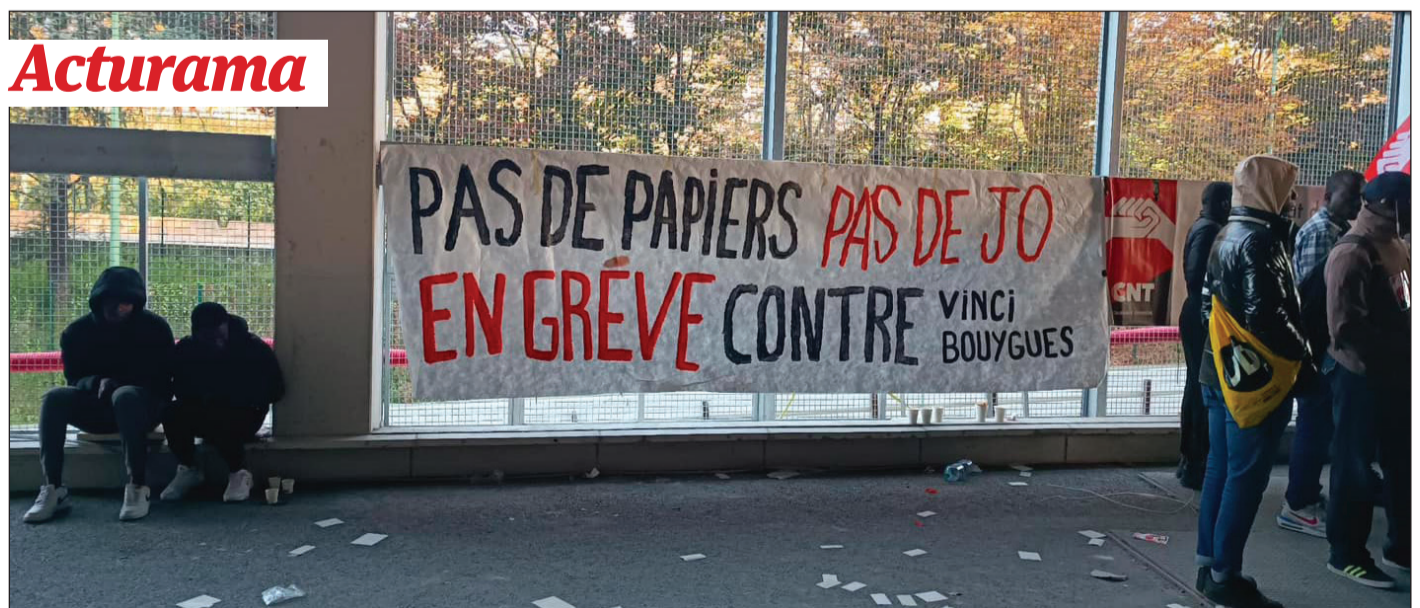 Acturama
PAS DE PAPIERS PAS DE JO
EN GRÈVE CONTRE VINCI
BOUYGUES
CNT
JD